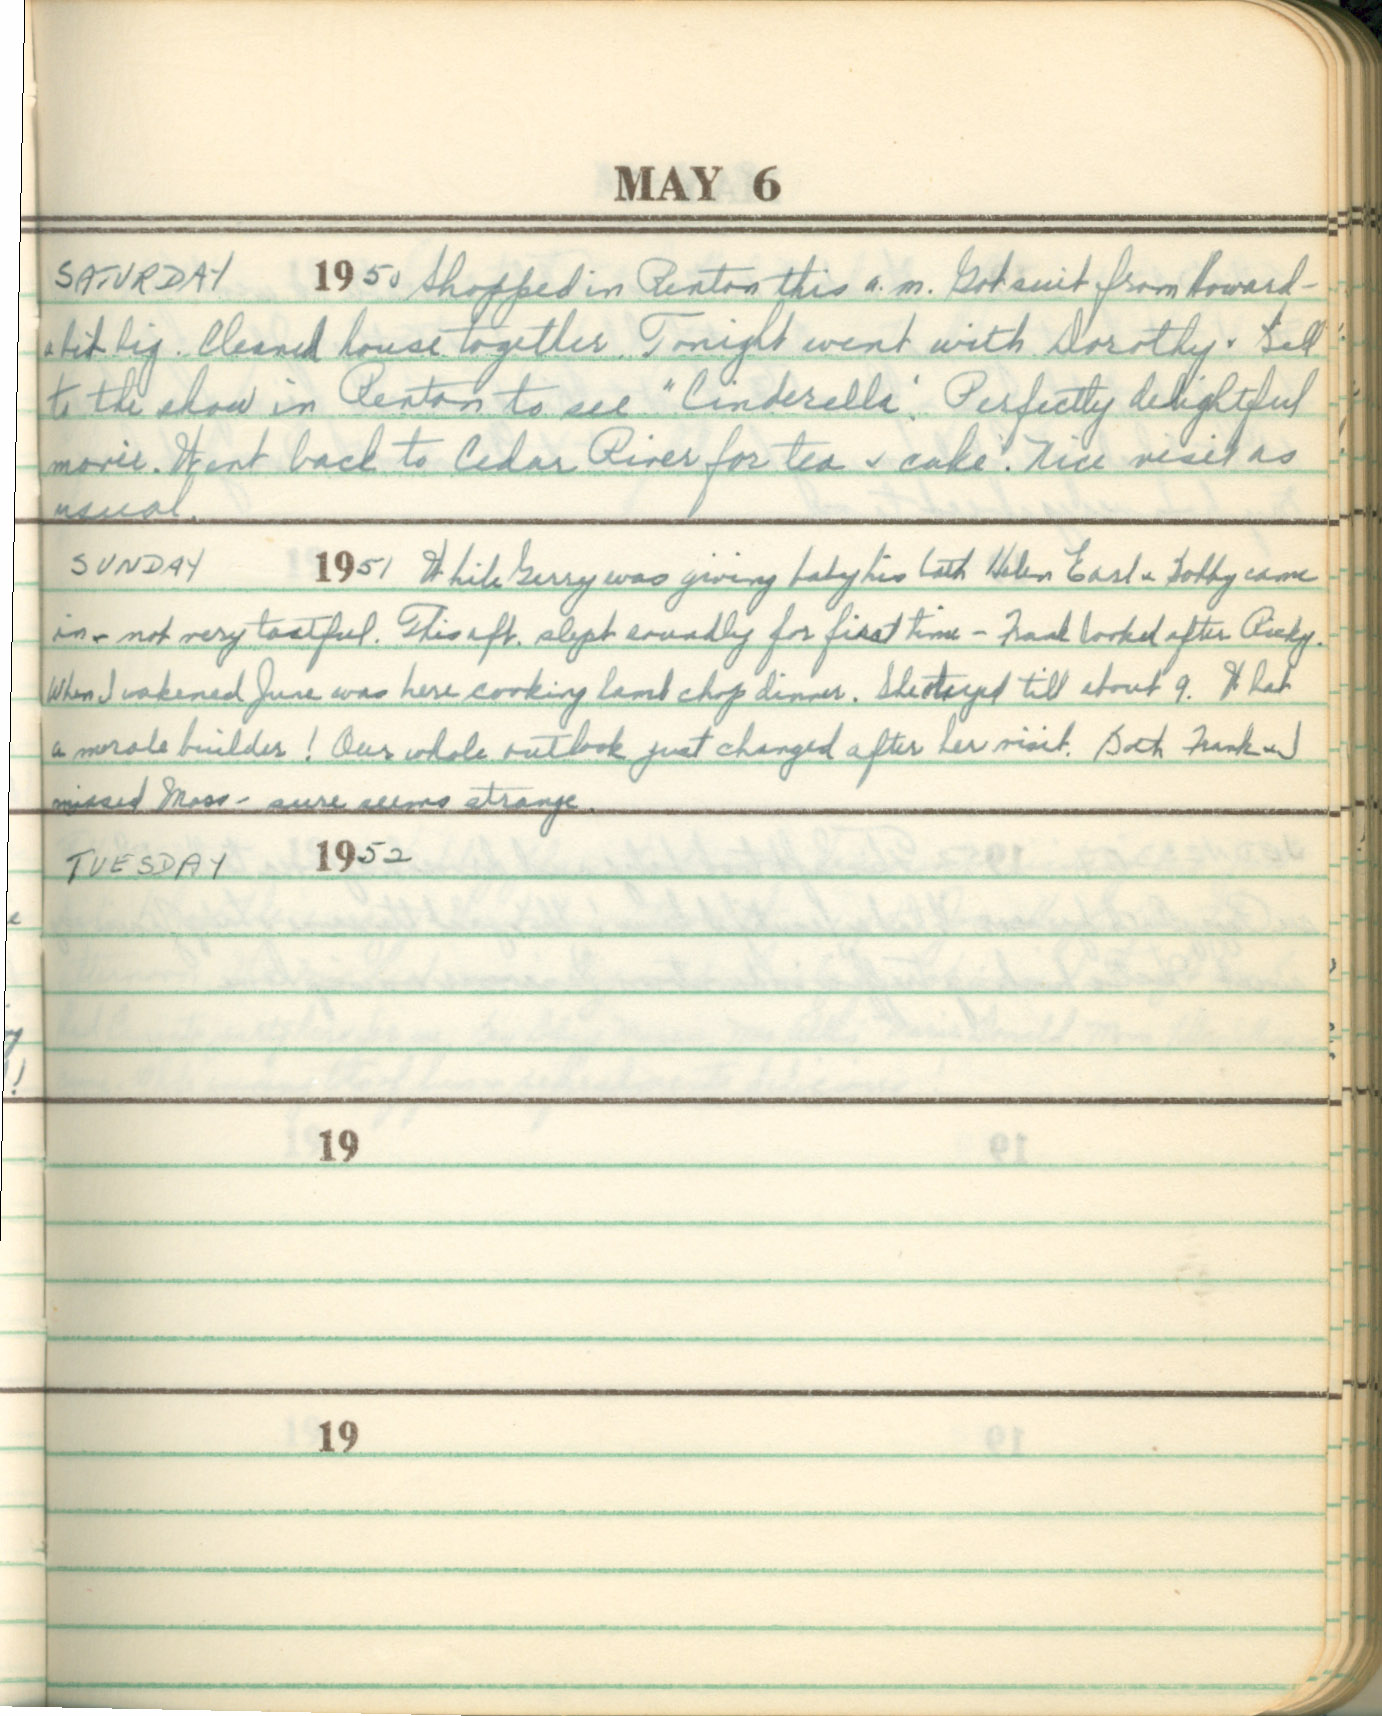 MAY 6
SATURDAY 1950 Shopped in Renton this a.m. Got suit from Howard -
a bit big. Cleaned house together. Tonight went with Dorothy & Bill
to the show in Renton to see "Cinderella". Perfectly delightful
movie. Went back to Cedar River for tea & cake. Nice visit as
usual.
SUNDAY 1951 While Gerry was giving baby his bath Helen Earl & Bobby came
in - not very tactful. This aft. slept soundly for first time - Frank looked after Ricky.
When I wakened June was here cooking lamb chop dinner. She stayed till about 9. What
a morale builder! Our whole outlook just changed after her visit. Both Frank & I
missed Mass - sure seems strange.
TUESDAY 1952
19
19